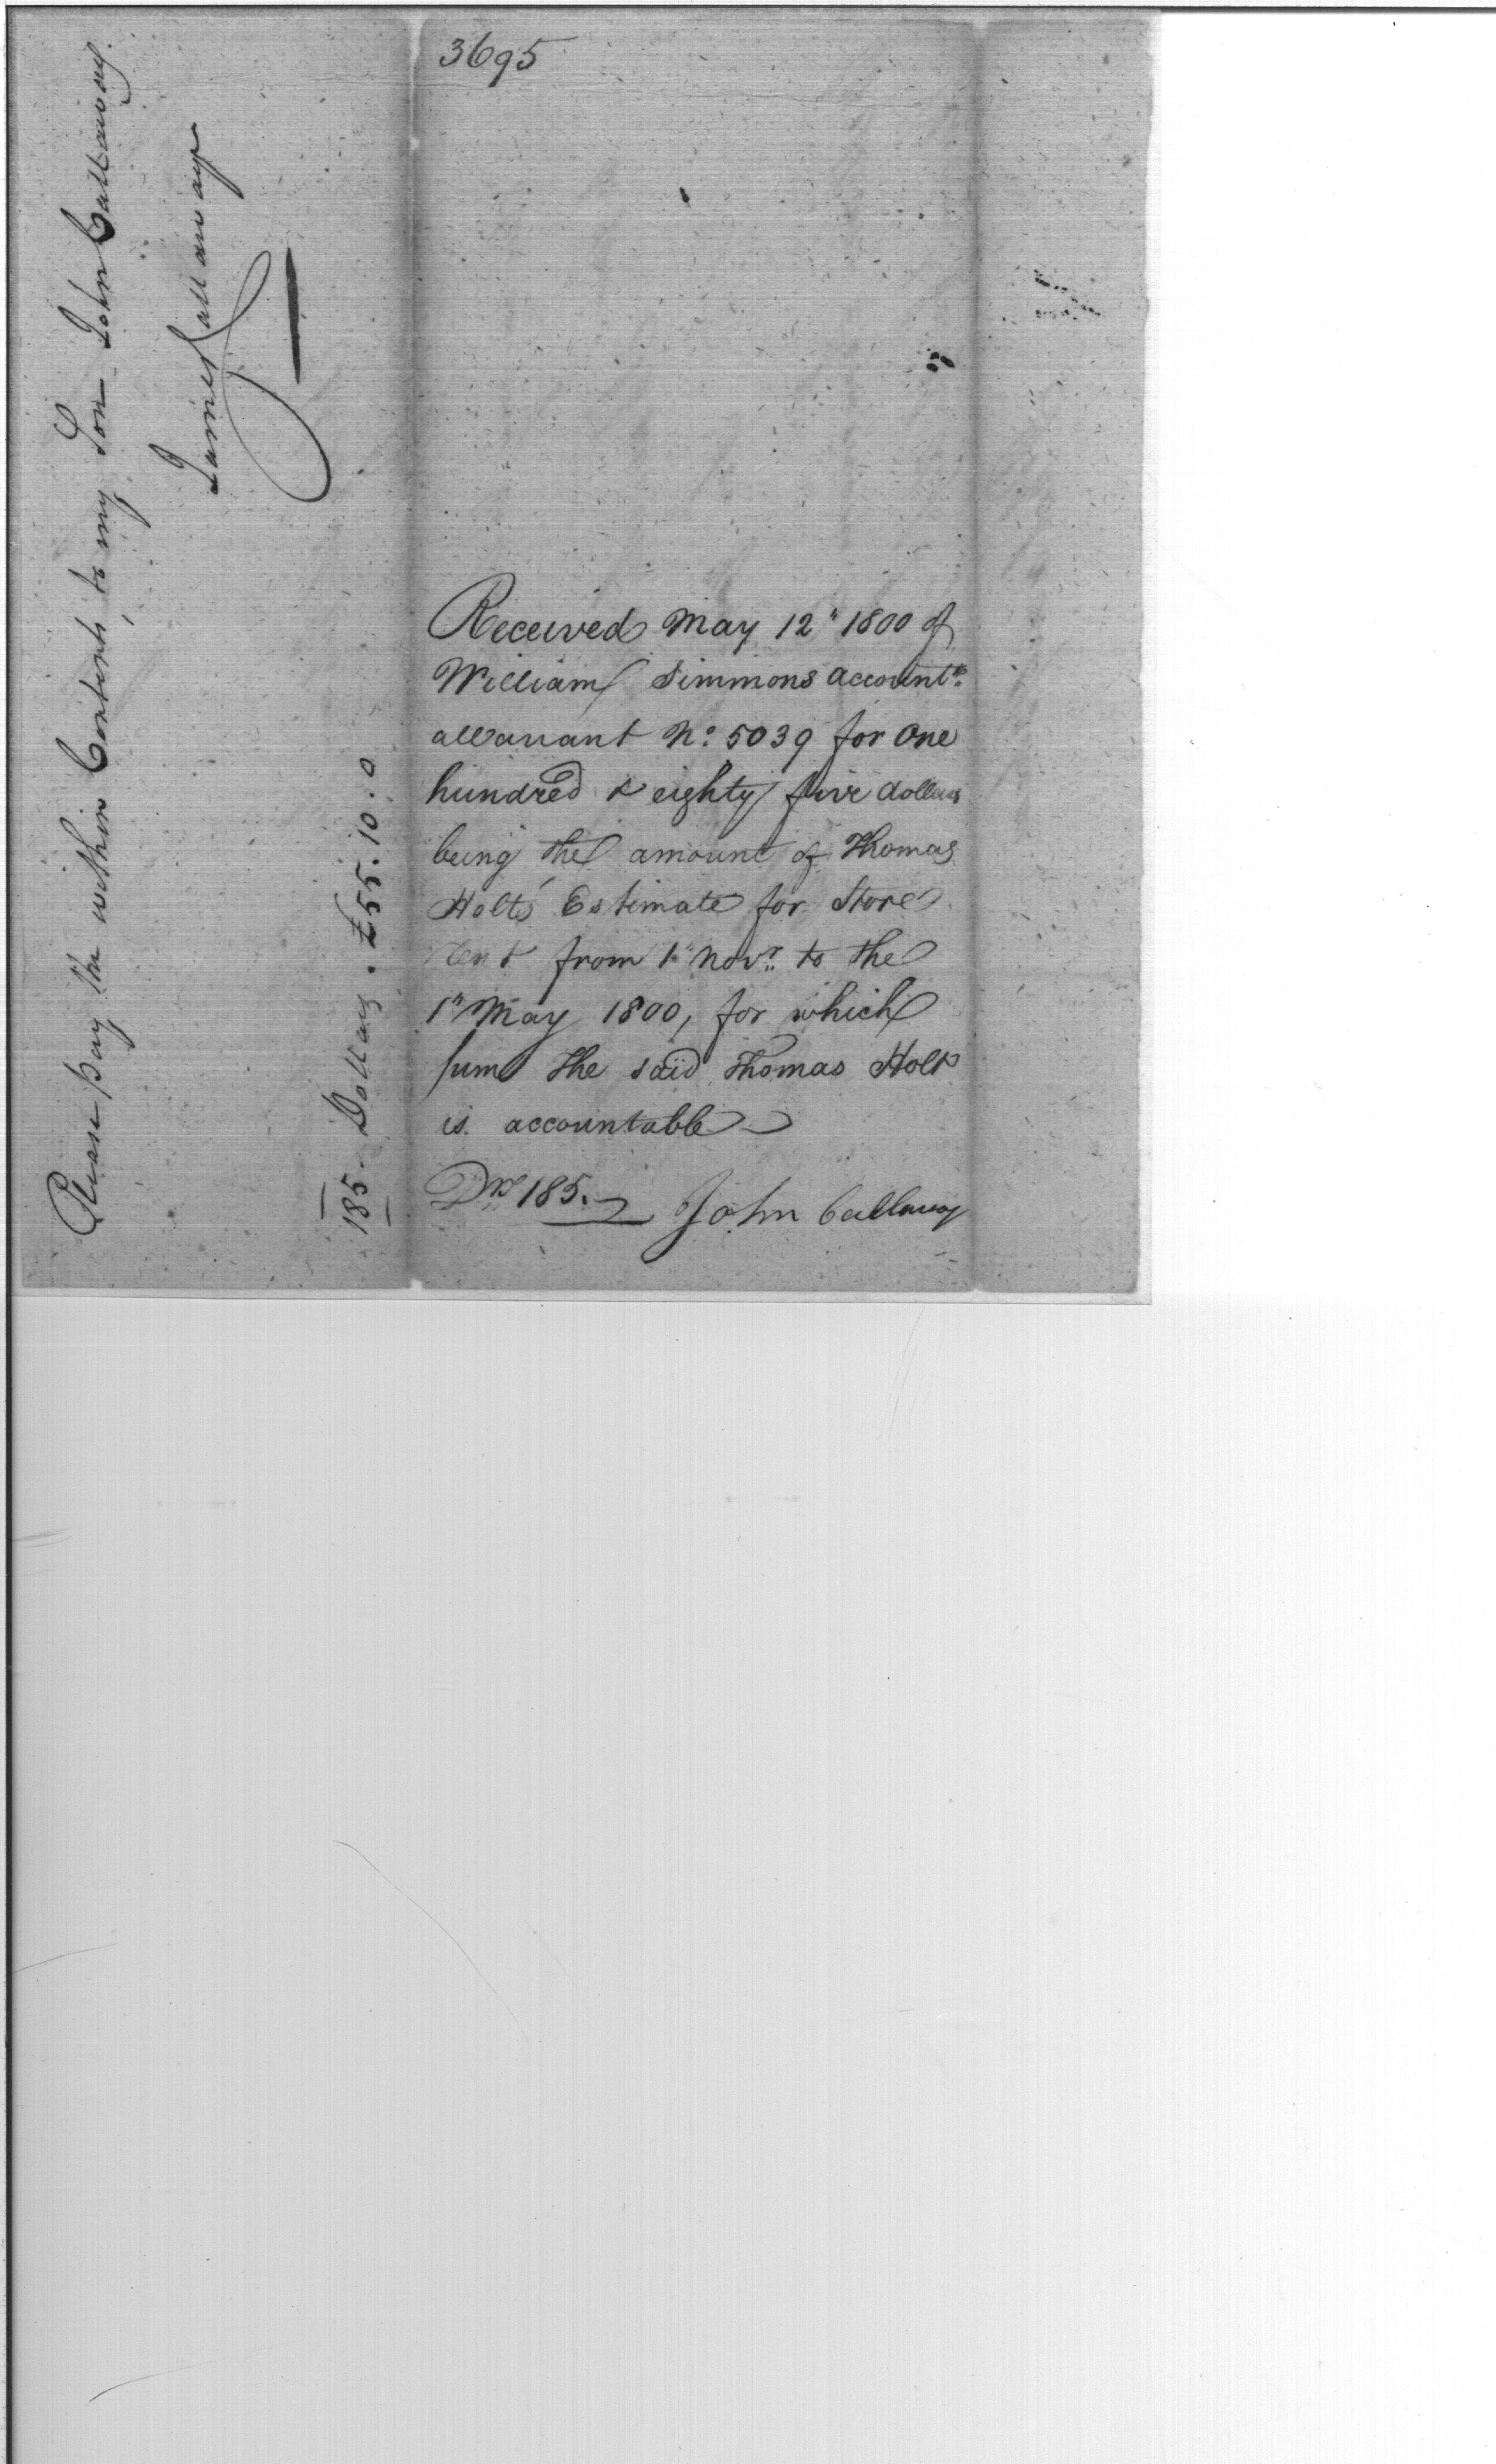 Please pay the within Contents to my Son John Callaway.
James Callaway
185 Dollars. £55.10.0
3695
Received May 12" 1800 of
William Simmons accountt.
a Warrant No. 5039 for One
hundred & eighty five dollars
being the amount of Thomas
Holts' Estimate for Store
rent from 1" Novr. to the
1" May 1800, for which
sum the said Thomas Holt
is accountable
Drs 185.
John Callaway